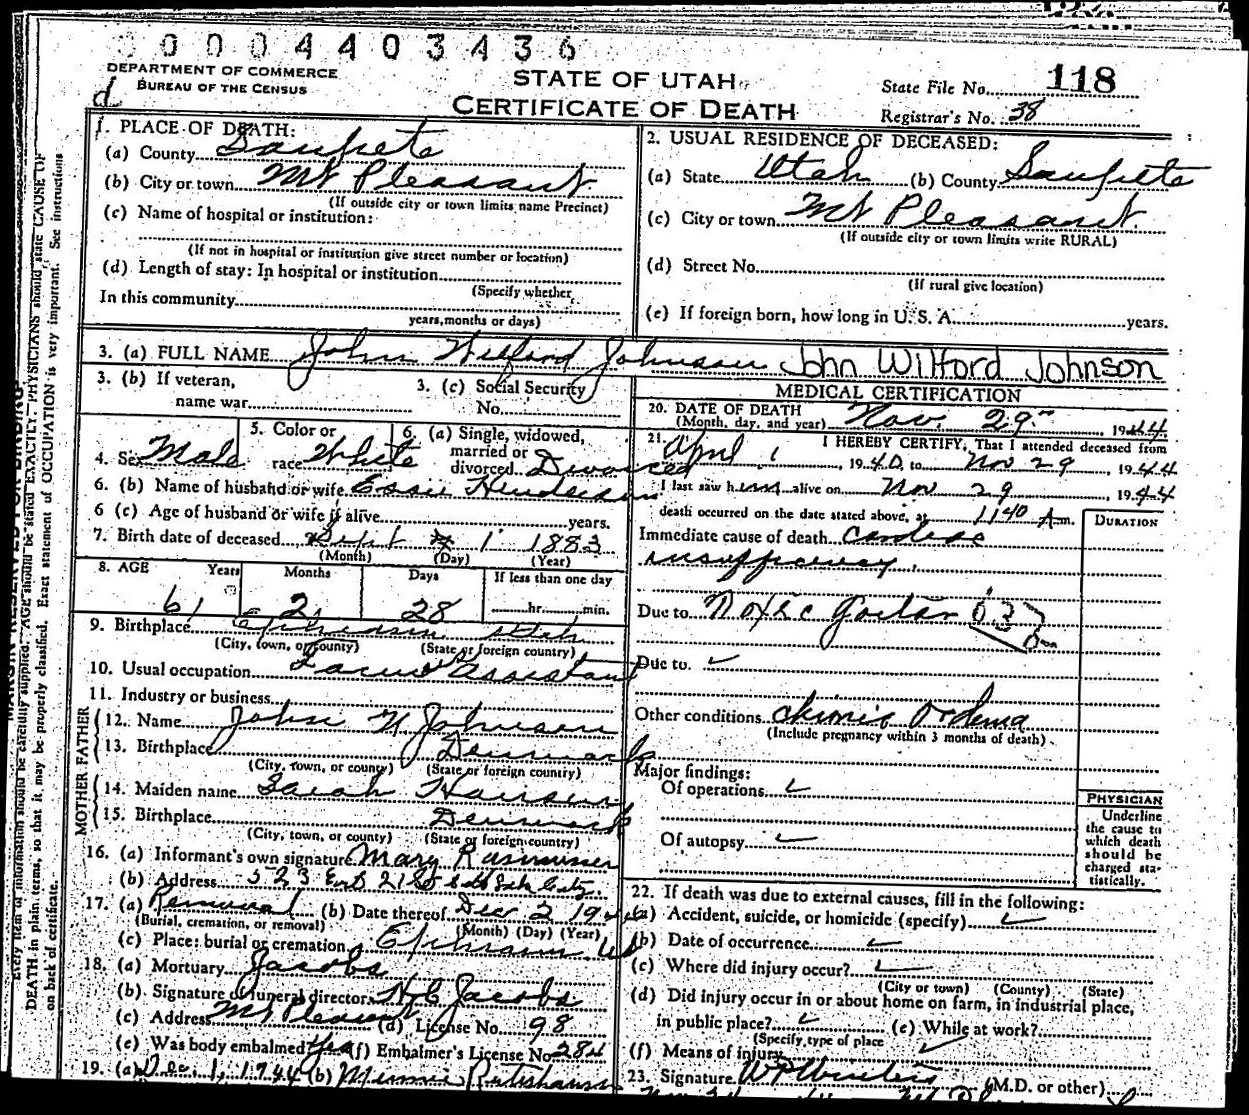 0 0 0 0 4 4 0 3 4 3 6
DEPARTMENT OF COMMERCE
BUREAU OF THE CENSUS
d
STATE OF UTAH
CERTIFICATE OF DEATH
State File No. 118
Registrar's No. 38
1. PLACE OF DEATH:
(a) County Sanpete
(b) City or town Mt Pleasant
(If outside city or town limits name Precinct)
(c) Name of hospital or institution:
(If not in hospital or institution give street number or location)
(d) Length of stay: In hospital or institution
(Specify whether
In this community
years, months or days)
2. USUAL RESIDENCE OF DECEASED:
(a) State Utah (b) County Sanpete
(c) City or town Mt Pleasant
(If outside city or town limits write RURAL)
(d) Street No.
(If rural give location)
(e) If foreign born, how long in U. S. A. years.
3. (a) FULL NAME John Wilford Johnson John Wilford Johnson
3. (b) If veteran,
name war
3. (c) Social Security
No.
4. Sex Male
5. Color or
race White
6. (a) Single, widowed,
married or
divorced Divorced
6. (b) Name of husband or wife Essie Henderson
6 (c) Age of husband or wife if alive years.
7. Birth date of deceased Sept 1 1883
(Month) (Day) (Year)
8. AGE Years Months Days If less than one day
61 2 28 hr. min.
9. Birthplace Ephraim Utah
(City, town, or county) (State or foreign country)
10. Usual occupation Assistant
11. Industry or business
FATHER
12. Name John Johnson
13. Birthplace Denmark
(City, town, or county) (State or foreign country)
MOTHER
14. Maiden name Sarah Hansen
15. Birthplace Denmark
(City, town, or county) (State or foreign country)
16. (a) Informant's own signature Mary Rasmussen
(b) Address 523 East 21 So Salt Lake City.
17. (a) Removal (b) Date thereof Dec 2 1944
(Burial, cremation, or removal) (Month) (Day) (Year)
(c) Place: burial or cremation Ephraim Ut
18. (a) Mortuary Jacobs
(b) Signature of funeral director Jacobs
(c) Address Mt Pleasant (d) License No. 98
(e) Was body embalmed? Yes (f) Embalmer's License No 284
19. (a) Dec 1, 1944 (b) Minnie
MEDICAL CERTIFICATION
20. DATE OF DEATH
(Month, day, and year) Nov. 29 1944
21. I HEREBY CERTIFY, That I attended deceased from
April 1, 1940, to Nov 29, 1944
I last saw him alive on Nov 29, 1944
death occurred on the date stated above, at 1140 A.m.
DURATION
Immediate cause of death Cardiac
insufficiency.
Due to Toxic Goiter
Due to ✓
Other conditions chronic
(Include pregnancy within 3 months of death)
Major findings:
Of operations ✓
Of autopsy ✓
PHYSICIAN
Underline
the cause to
which death
should be
charged sta-
tistically.
22. If death was due to external causes, fill in the following:
(a) Accident, suicide, or homicide (specify) ✓
(b) Date of occurrence ✓
(c) Where did injury occur? ✓
(City or town) (County) (State)
(d) Did injury occur in or about home on farm, in industrial place,
in public place? ✓ (e) While at work?
(Specify type of place
(f) Means of injury ✓
23. Signature (M.D. or other)
DEATH in plain terms, so that it may be properly classified. Exact statement of OCCUPATION is very important. See instructions
on back of certificate.